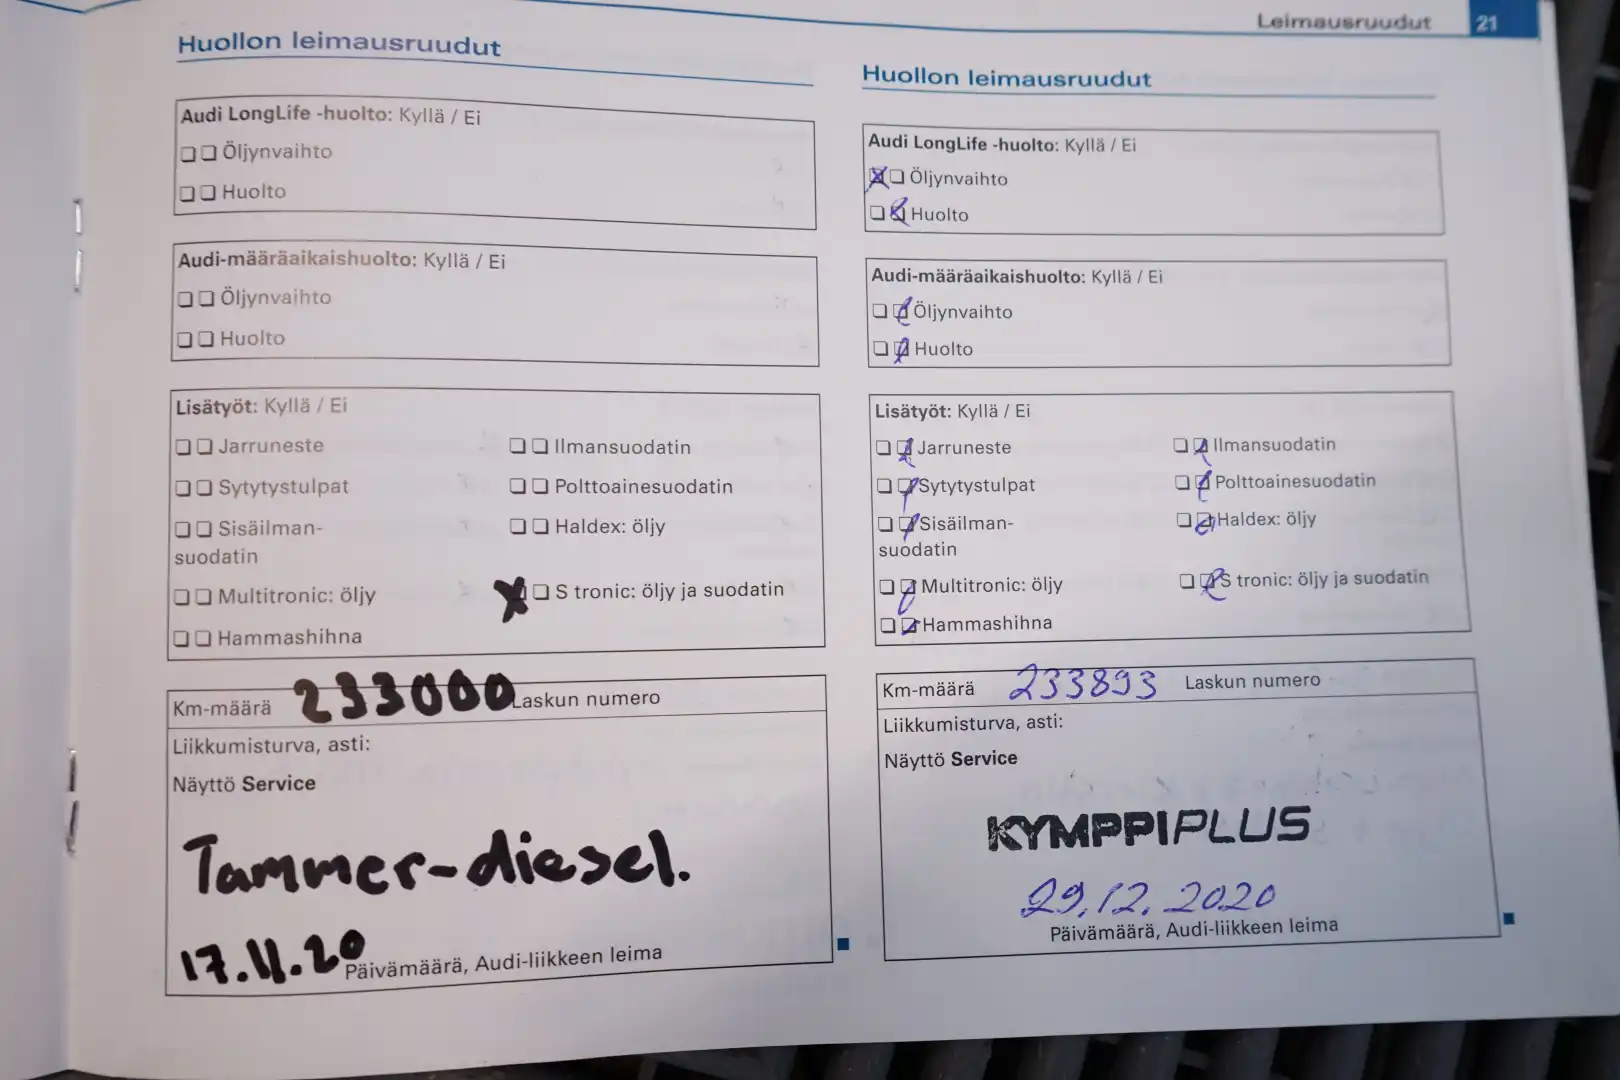 Leimausruudut 21
Huollon leimausruudut
Audi LongLife -huolto: Kyllä / Ei
❏ ❏ Öljynvaihto
❏ ❏ Huolto
Audi-määräaikaishuolto: Kyllä / Ei
❏ ❏ Öljynvaihto
❏ ❏ Huolto
Lisätyöt: Kyllä / Ei
❏ ❏ Jarruneste
❏ ❏ Ilmansuodatin
❏ ❏ Sytytystulpat
❏ ❏ Polttoainesuodatin
❏ ❏ Sisäilman-
suodatin
❏ ❏ Haldex: öljy
❏ ❏ Multitronic: öljy
X ❏ S tronic: öljy ja suodatin
❏ ❏ Hammashihna
Km-määrä 233000 Laskun numero
Liikkumisturva, asti:
Näyttö Service
Tammer-diesel.
17.11.20 Päivämäärä, Audi-liikkeen leima
Huollon leimausruudut
Audi LongLife -huolto: Kyllä / Ei
X ❏ Öljynvaihto
❏ X Huolto
Audi-määräaikaishuolto: Kyllä / Ei
❏ X Öljynvaihto
❏ X Huolto
Lisätyöt: Kyllä / Ei
❏ X Jarruneste
❏ X Ilmansuodatin
❏ X Sytytystulpat
❏ X Polttoainesuodatin
❏ X Sisäilman-
suodatin
❏ X Haldex: öljy
❏ X Multitronic: öljy
❏ X S tronic: öljy ja suodatin
❏ X Hammashihna
Km-määrä 233893 Laskun numero
Liikkumisturva, asti:
Näyttö Service
KYMPPIPLUS
29.12.2020
Päivämäärä, Audi-liikkeen leima